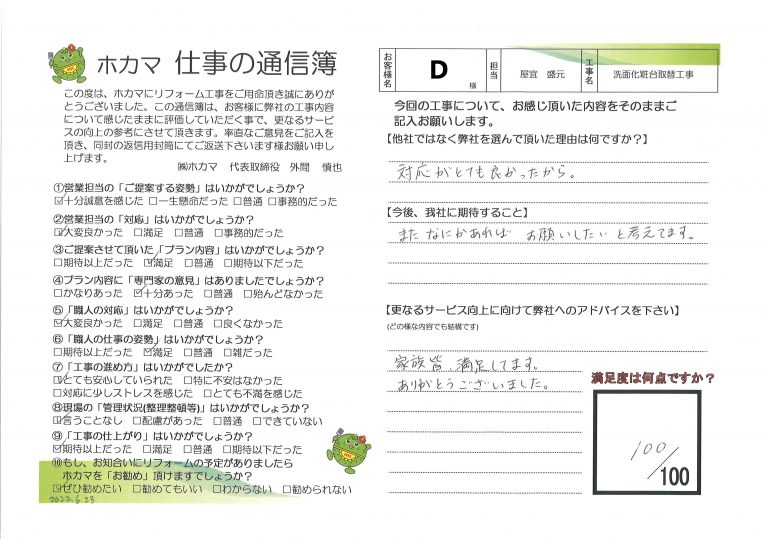 ホカマ 仕事の通信簿
この度は、ホカマにリフォーム工事をご用命頂き誠にありが
とうございました。この通信簿は、お客様に弊社の工事内容
について感じたままに評価していただく事で、更なるサービ
スの向上の参考にさせて頂きます。率直なご意見をご記入を
頂き、同封の返信用封筒にてご返送下さいます様お願い申し
上げます。
㈱ホカマ 代表取締役 外間 慎也
①営業担当の「ご提案する姿勢」はいかがでしょうか?
☑十分誠意を感じた □一生懸命だった □普通 □事務的だった
②営業担当の「対応」はいかがでしょうか?
☑大変良かった □満足 □普通 □事務的だった
③ご提案させて頂いた「プラン内容」はいかがでしょうか?
□期待以上だった ☑満足 □普通 □期待以下だった
④プラン内容に「専門家の意見」はありましたでしょうか?
□かなりあった ☑十分あった □普通 □殆んどなかった
⑤「職人の対応」はいかがでしょうか?
☑大変良かった □満足 □普通 □良くなかった
⑥「職人の仕事の姿勢」はいかがでしょうか?
□期待以上だった ☑満足 □普通 □雑だった
⑦「工事の進め方」はいかがでしたか?
☑とても安心していられた □特に不安はなかった
□対応に少しストレスを感じた □とても不満を感じた
⑧現場の「管理状況(整理整頓等)」はいかがでしょうか?
☑言うことなし □配慮があった □普通 □できていない
⑨「工事の仕上がり」はいかがでしょうか?
☑期待以上だった □満足 □普通 □期待以下だった
⑩もし、お知合いにリフォームの予定がありましたら
ホカマを「お勧め」頂けますでしょうか?
☑ぜひ勧めたい □勧めてもいい □わからない □勧められない
2022.6.23
お客様名 D 様 担当 屋宜 盛元 工事名 洗面化粧台取替工事
今回の工事について、お感じ頂いた内容をそのままご
記入お願いします。
【他社ではなく弊社を選んで頂いた理由は何ですか?】
対応がとても良かったから。
【今後、我社に期待すること】
また なにかあれば お願いしたい と考えてます。
【更なるサービス向上に向けて弊社へのアドバイスを下さい】
(どの様な内容でも結構です)
家族皆、満足してます。
ありがとうございました。
満足度は何点ですか?
100/100